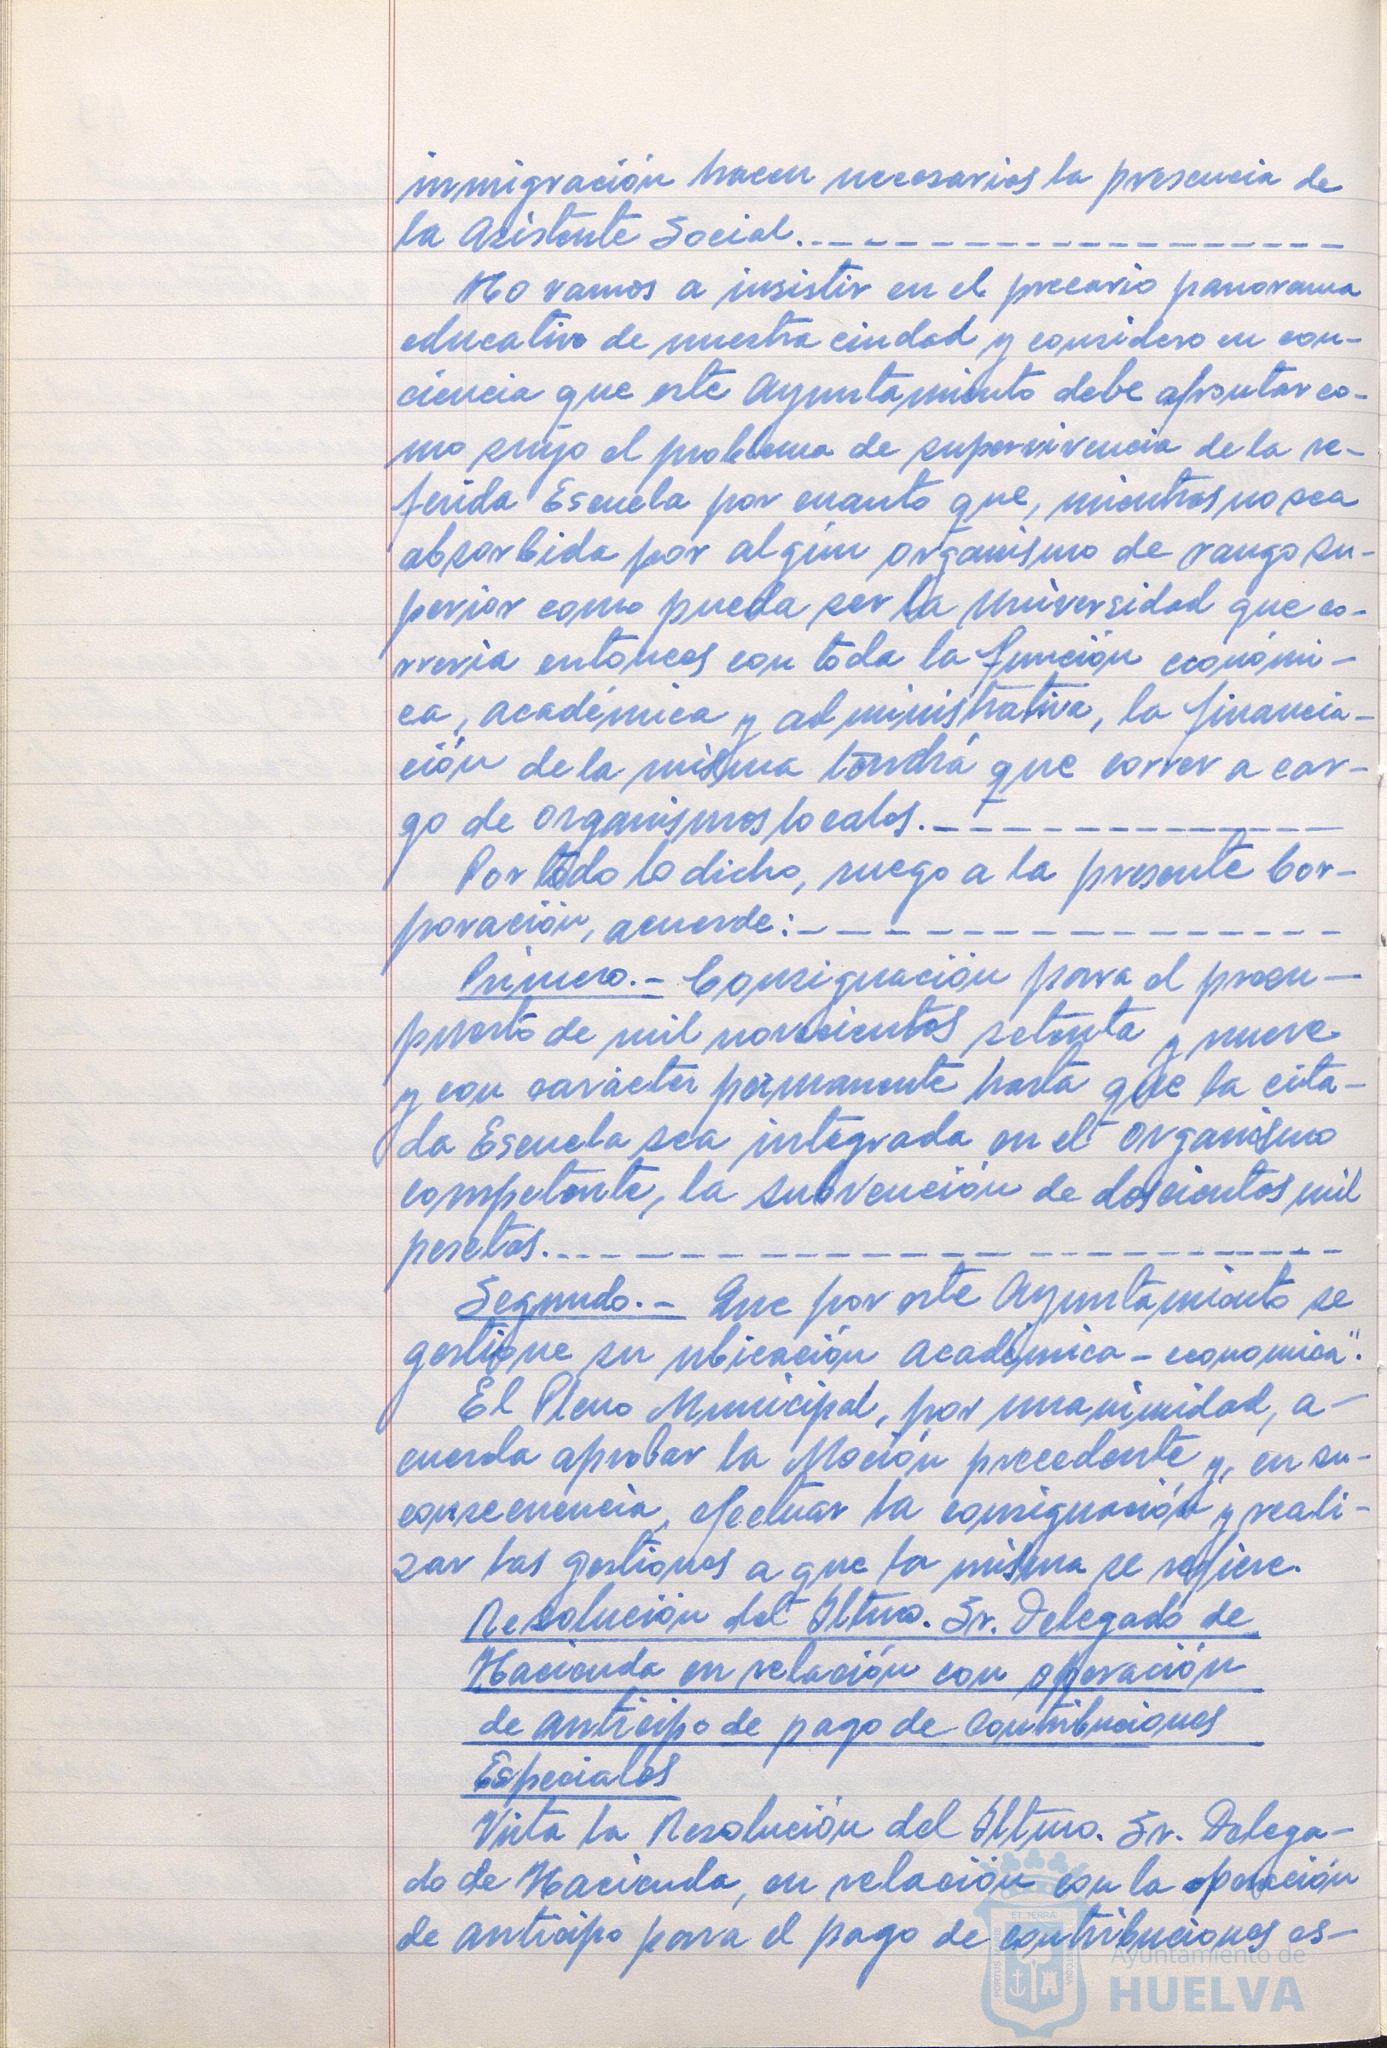 inmigración hacen necesarios la presencia de
la Asistente Social.
No vamos a insistir en el precario panorama
educativo de nuestra ciudad y considero en con-
ciencia que este Ayuntamiento debe afrontar co-
mo suyo el problema de supervivencia de la re-
ferida Escuela por cuanto que, mientras no sea
absorbida por algún organismo de rango su-
perior como pueda ser la Universidad que co-
rrería entonces con toda la función económi-
ca, académica y administrativa, la financia-
ción de la misma tendrá que correr a car-
go de organismos locales.
Por todo lo dicho, ruego a la presente Cor-
poración, acuerde:
Primero.- Consignación para el presu-
puesto de mil novecientos setenta y nueve
y con carácter permanente hasta que la cita-
da Escuela sea integrada en el organismo
competente, la subvención de doscientos mil
pesetas.
Segundo.- Que por este Ayuntamiento se
gestione su ubicación académica-economica".
El Pleno Municipal, por unanimidad, a-
cuerda aprobar la Moción precedente y, en su
consecuencia, efectuar la consignación y reali-
zar las gestiones a que la misma se refiere.
Resolución del Iltmo. Sr. Delegado de
Hacienda en relación con operación
de anticipo de pago de Contribuciones
Especiales
Vista la Resolución del Iltmo. Sr. Delega-
do de Hacienda, en relación con la operación
de anticipo para el pago de contribuciones es-
Ayuntamiento de
HUELVA